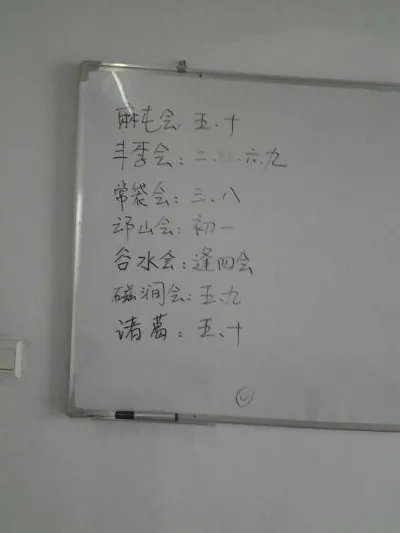 麻屯会:五、十
丰李会:二、六、九
常袋会:三、八
邙山会:初一
谷水会:逢四会
磁涧会:五、九
诸葛:五、十